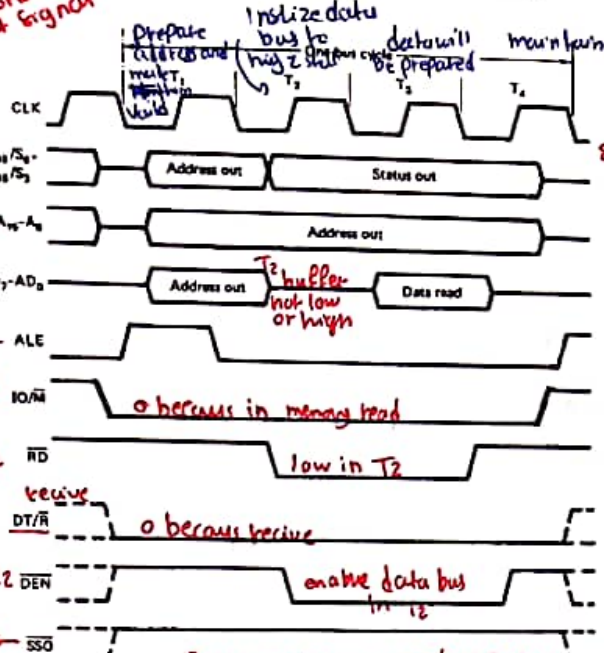 Signal
prepare
address and
make
valid
Inslize data
bus to
hig z
One bus cycle
data will
be prepared
maintain
T1
T2
T3
T4
CLK
/S6-
/S3
Address out
Status out
A15-A8
Address out
-AD0
Address out
T2 buffer
not low
or high
Data read
ALE
IO/M̅
0 becaus in memory read
R̅D̅
low in T2
recive
DT/R̅
0 becaus recive
2 D̅E̅N̅
enable data bus
in T2
S̅S̅O̅